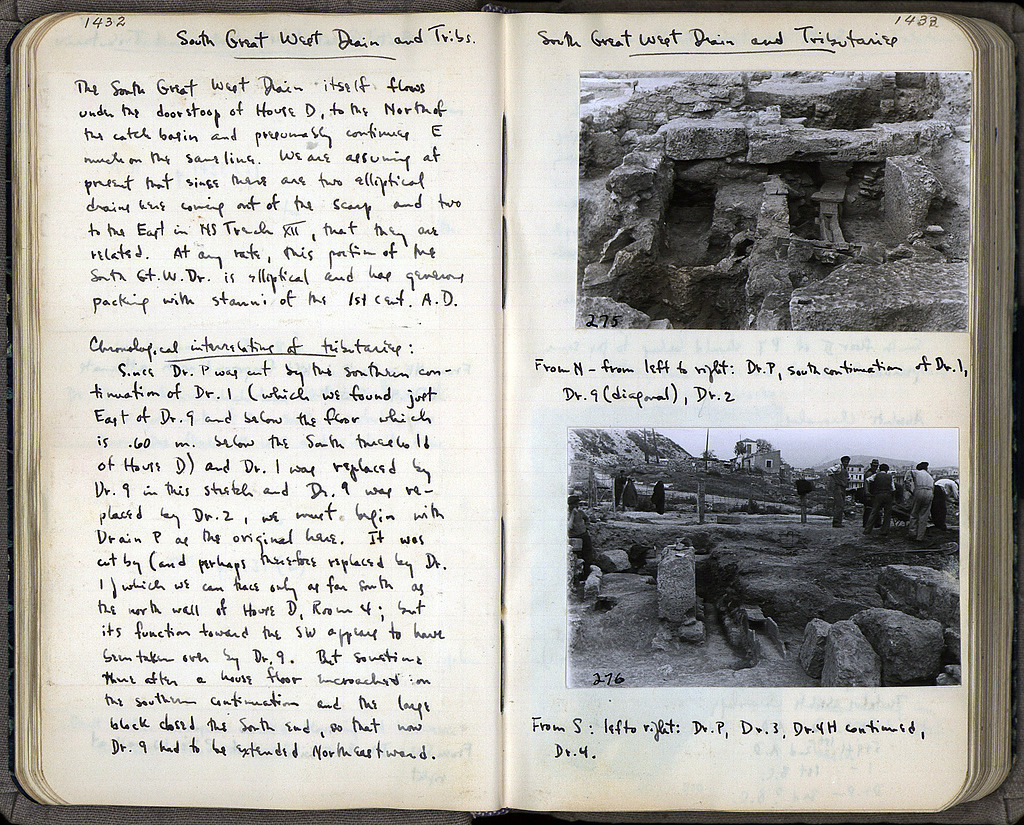 1432
South Great West Drain and Tribs.
The South Great West Drain itself flows
under the doorstoop of House D, to the North of
the catch basin and presumably continues E
much on the same line. We are assuming at
present that since there are two elliptical
drains here coming out of the scarp and two
to the East in NS Trench XII, that they are
related. At any rate, this portion of the
South Gt. W. Dr. is elliptical and has generous
packing with stamni of the 1st cent. A.D.
Chronological interrelating of tributaries:
Since Dr. P was cut by the southern con-
tinuation of Dr. 1 (which we found just
East of Dr. 9 and below the floor which
is .60 m. below the South threshold
of House D) and Dr. 1 was replaced by
Dr. 9 in this stretch and Dr. 9 was re-
placed by Dr. 2, we must begin with
Drain P as the original here. It was
cut by (and perhaps therefore replaced by Dr.
1) which we can trace only as far South as
the north wall of House D, Room 4; but
its function toward the SW appears to have
been taken over by Dr. 9. But sometime
there after a house floor encroached on
the southern continuation and the large
block closed the South end, so that now
Dr. 9 had to be extended Northeastward.
1433
South Great West Drain and Tributaries
275
From N - from left to right: Dr. P, south continuation of Dr. 1,
Dr. 9 (diagonal), Dr. 2
276
From S: left to right: Dr. P, Dr. 3, Dr. 4H continued,
Dr. 4.